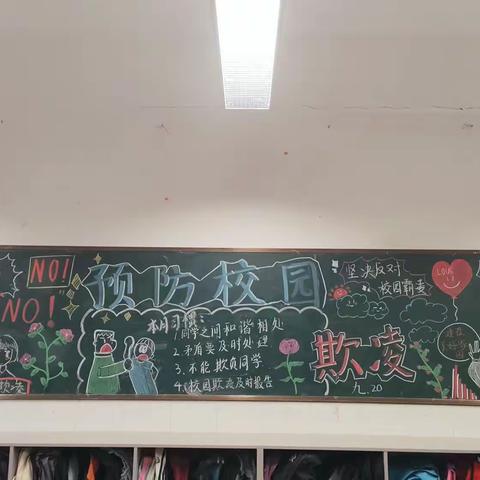 NO!
NO!
预防校园
欺凌
九.20
本月习惯:
1.同学之间和谐相处
2.矛盾要及时处理
3.不能欺负同学
4.校园欺凌及时报告
坚决反对
校园霸凌
LOVE